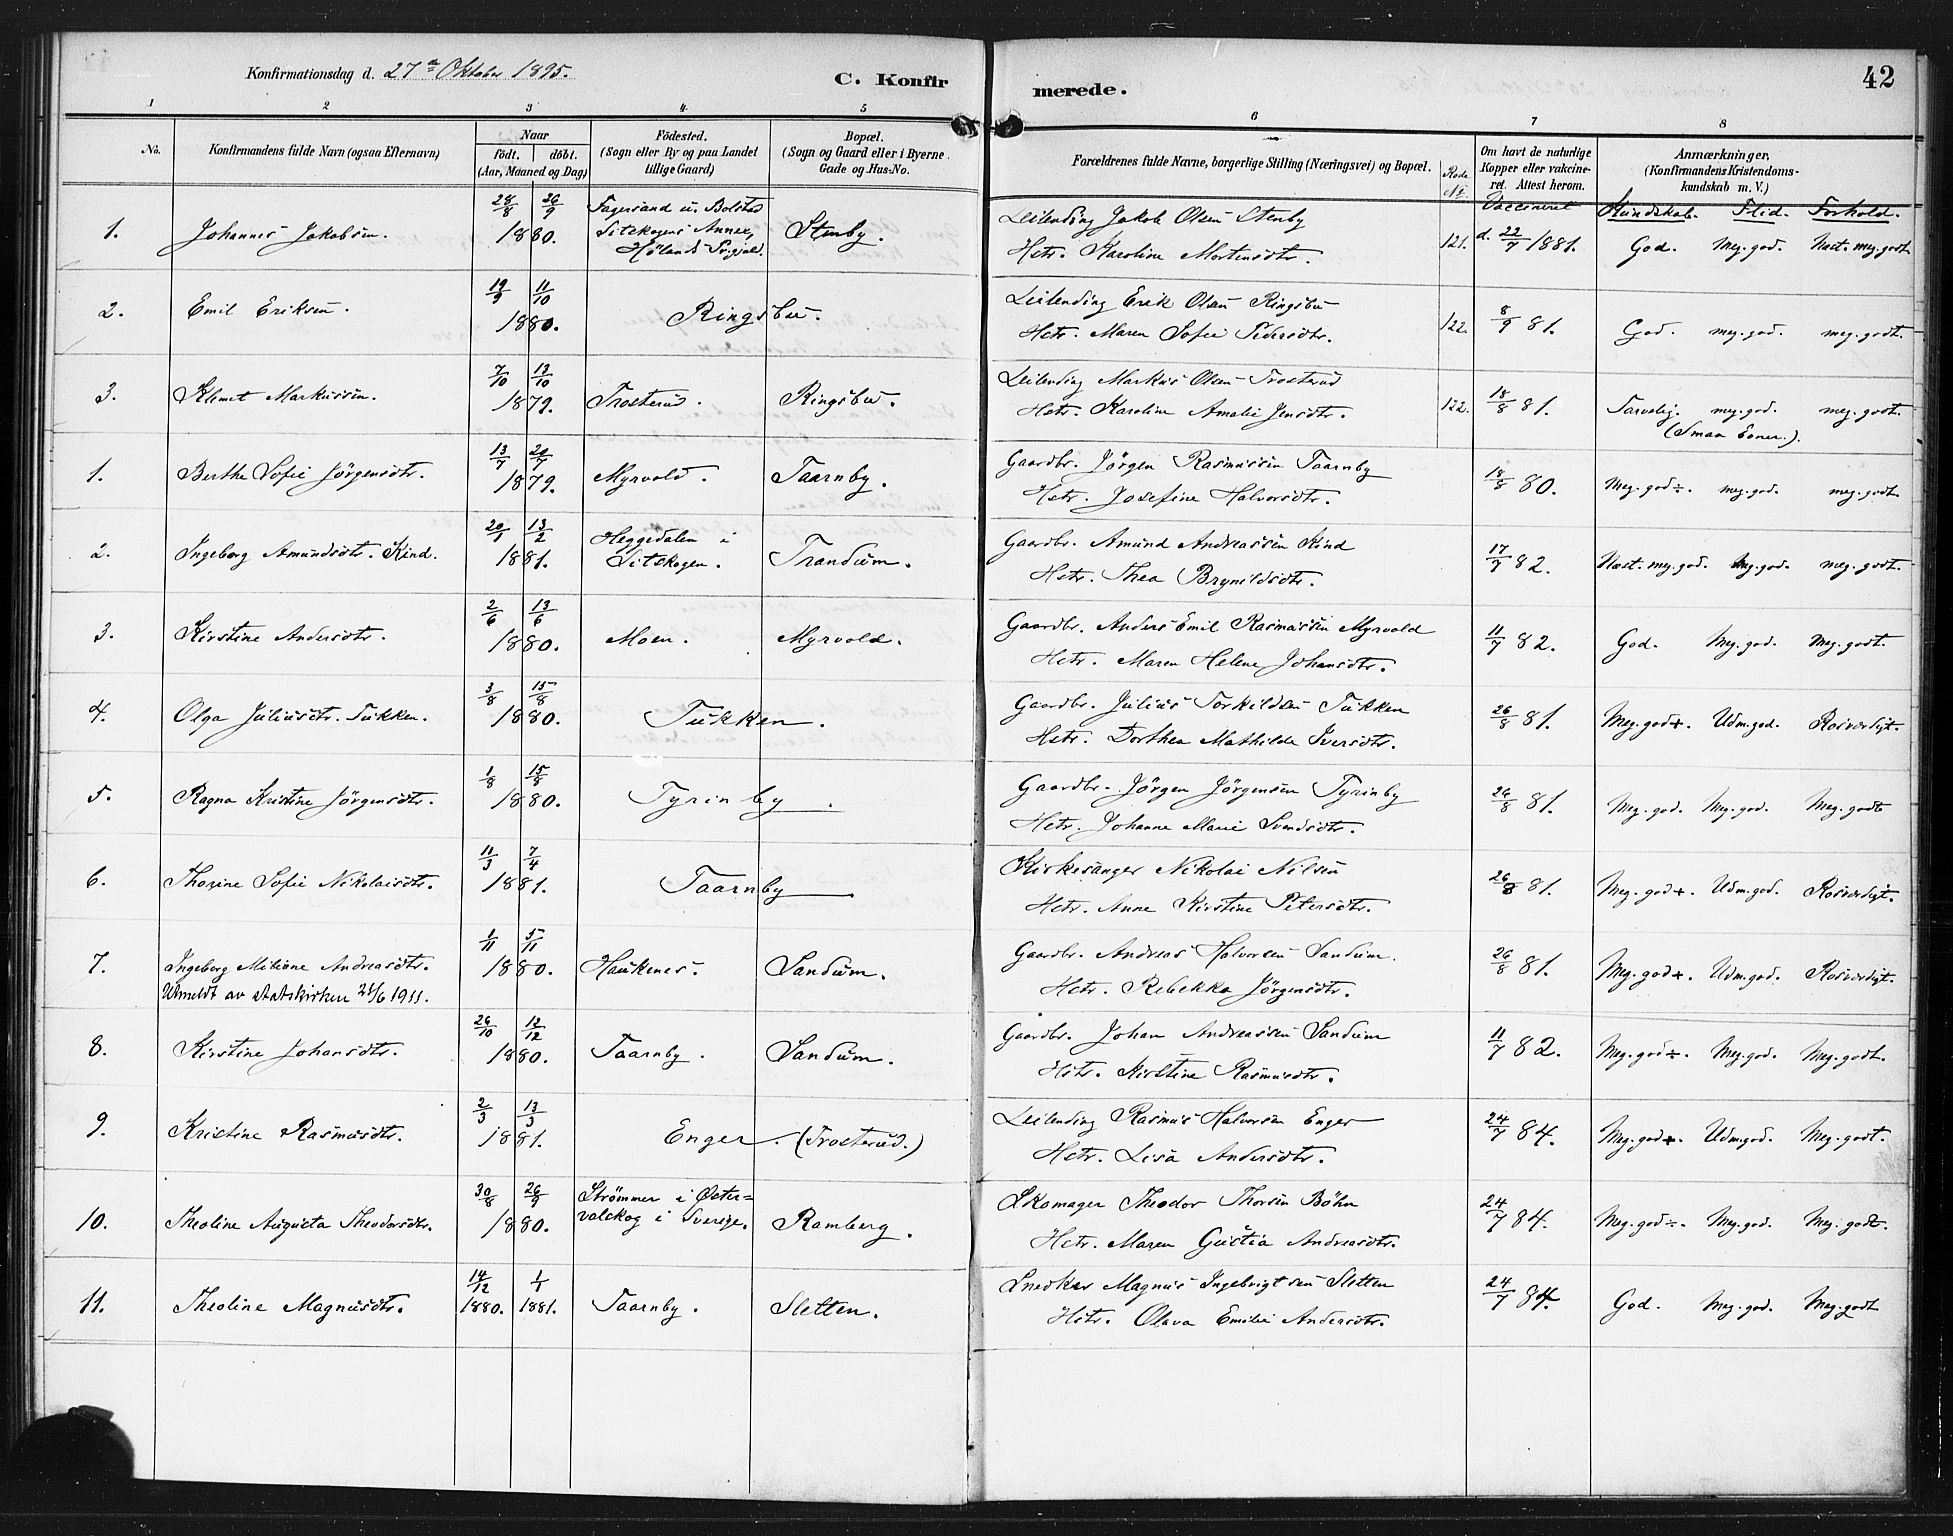 Konfirmationsdag d. 27de Oktober 1895. C. Konfir
merede. 42
1 2 3 4 5 6 7 8
No. Konfirmandens fulde Navn (ogsaa Efternavn) Naar födt. döbt. (Aar, Maaned og Dag) Födested. (Sogn eller By og paa Landet tillige Gaard) Bopæl. (Sogn og Gaard eller i Byerne Gade og Hus-No. Forældrenes fulde Navne, borgerlige Stilling (Næringsvei) og Bopæl. Rode No. Om havt de naturlige Kopper eller vakcineret. Attest herom. Anmærkninger, (Konfirmandens Kristendomskundskab m. V.)
Vaccineret Kundskab. Flid. Forhold.
1. Johannes Jakobsen. 28/8 26/9 1880. Fagersand u. Bolstad Sitskogens Annex, Hølands Prgjeld. Stenby. Leilending Jakob Olsen Stenby
Hstr. Karoline Mortensdtr. 121. d. 22/7 1881. God. Meg. god. Næst. meg. godt.
2. Emil Eriksen. 19/9 11/10 1880. Ringsbu. Leilending Erik Olsen Ringsbu
Hstr. Maren Sofie Pedersdtr. 122. 8/9 81. God. meg. god. meg. godt.
3. Klemet Markussen. 7/10 13/10 1879. Trosterud. Ringsbu. Leilending Markus Olsen Trosterud
Hstr. Karoline Amalie Jensdtr. 122. 18/8 81. Tarvelig. meg. god. meg. godt.
(Smaa Evner.).
1. Berthe Sofie Jörgensdtr. 13/7 20/7 1879. Myrvold. Taarnby. Gaardbr. Jörgen Rasmussen Taarnby
Hstr. Josefine Halvorsdtr. 18/8 80. Meg. god÷. meg. god. meg. godt.
2. Ingeborg Amundsdtr. Kind. 20/1 13/2 1881. Heggedalen i Sitskogen. Trandum. Gaardbr. Amund Andreassen Kind
Hstr. Thea Brynildsdtr. 17/7 82. Næst. meg. god. Meg. god. meg. godt.
3. Kirstine Andersdtr. 2/6 13/6 1880. Moen. Myrvold. Gaardbr. Anders Emil Rasmussen Myrvold
Hstr. Maren Helene Johansdtr. 11/7 82. God. Meg. god. Meg. godt.
4. Olga Juliusdtr. Tukken. 3/8 15/8 1880. Tukken. Gaardbr. Julius Torkildsen Tukken
Hstr. Dorthea Mathilde Iversdtr. 26/8 81. Meg. god+. Udm. god. Rosværdigt.
5. Ragna Kristine Jörgensdtr. 1/8 15/8 1880. Tyrinby. Gaardbr. Jörgen Jörgensen Tyrinby
Hstr. Johanne Marie Svendsdtr. 26/8 81. Meg. god. Meg. god. Meg. godt
6. Thorine Sofie Nikolaisdtr. 11/3 7/4 1881. Taarnby Kirkesanger Nikolai Nilsen
Hstr. Anne Kirstine Petersdtr. 26/8 81. Meg. god+. Udm. god. Rosværdigt.
7. Ingeborg Milione Andreasdtr. 1/11 5/11 1880. Haukenes. Sandum. Gaardbr. Andreas Halvorsen Sandum.
Utmeldt av statskirken 21/6 1911. Hstr. Rebekka Jörgensdtr. 26/8 81. Meg. god+. Udm. god. Rosværdigt.
8. Kirstine Johansdtr. 26/10 12/12 1880. Taarnby. Sandum. Gaardbr. Johan Andreassen Sandum
Hstr. Kirstine Rasmusdtr. 11/7 82. Meg. god÷. Meg. god. Meg. godt.
9. Kristine Rasmusdtr. 2/3 13/3 1881. Enger. (Trosterud.) Leilending Rasmus Halvorsen Enger
Hstr. Lisa Andersdtr. 24/7 84. Meg. god+. Udm. god. Meg. godt.
10. Theoline Augusta Theodorsdtr. 30/8 26/9 1880. Strömmer i Østervalskog i Sverige. Ramberg. Skomager Theodor Thorsen Böhn
Hstr. Maren Gustia Andreasdtr. 24/7 84. Meg. god÷. Meg. god. Meg. godt.
11. Theoline Magnusdtr. 14/12 1880. 1/1 1881. Taarnby. Sletten. Snedker Magnus Ingebrigtsen Sletten
Hstr. Olava Emilie Andersdtr. 24/7 84. God. Meg. god. Meg. godt